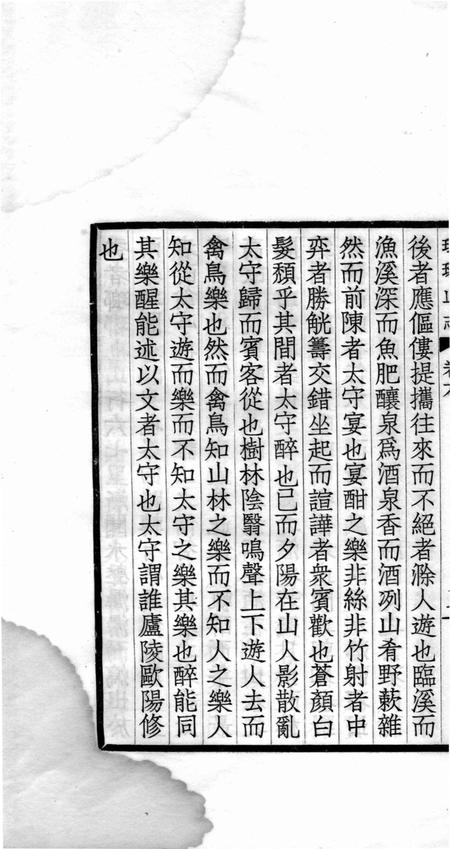 後者應傴僂提攜往來而不絕者滁人遊也臨溪而
漁溪深而魚肥釀泉爲酒泉香而酒冽山肴野蔌雜
然而前陳者太守宴也宴酣之樂非絲非竹射者中
弈者勝觥籌交錯坐起而諠譁者衆賓歡也蒼顏白
髮頹乎其間者太守醉也已而夕陽在山人影散亂
太守歸而賓客從也樹林陰翳鳴聲上下遊人去而
禽鳥樂也然而禽鳥知山林之樂而不知人之樂人
知從太守遊而樂而不知太守之樂其樂也醉能同
其樂醒能述以文者太守也太守謂誰廬陵歐陽修
也